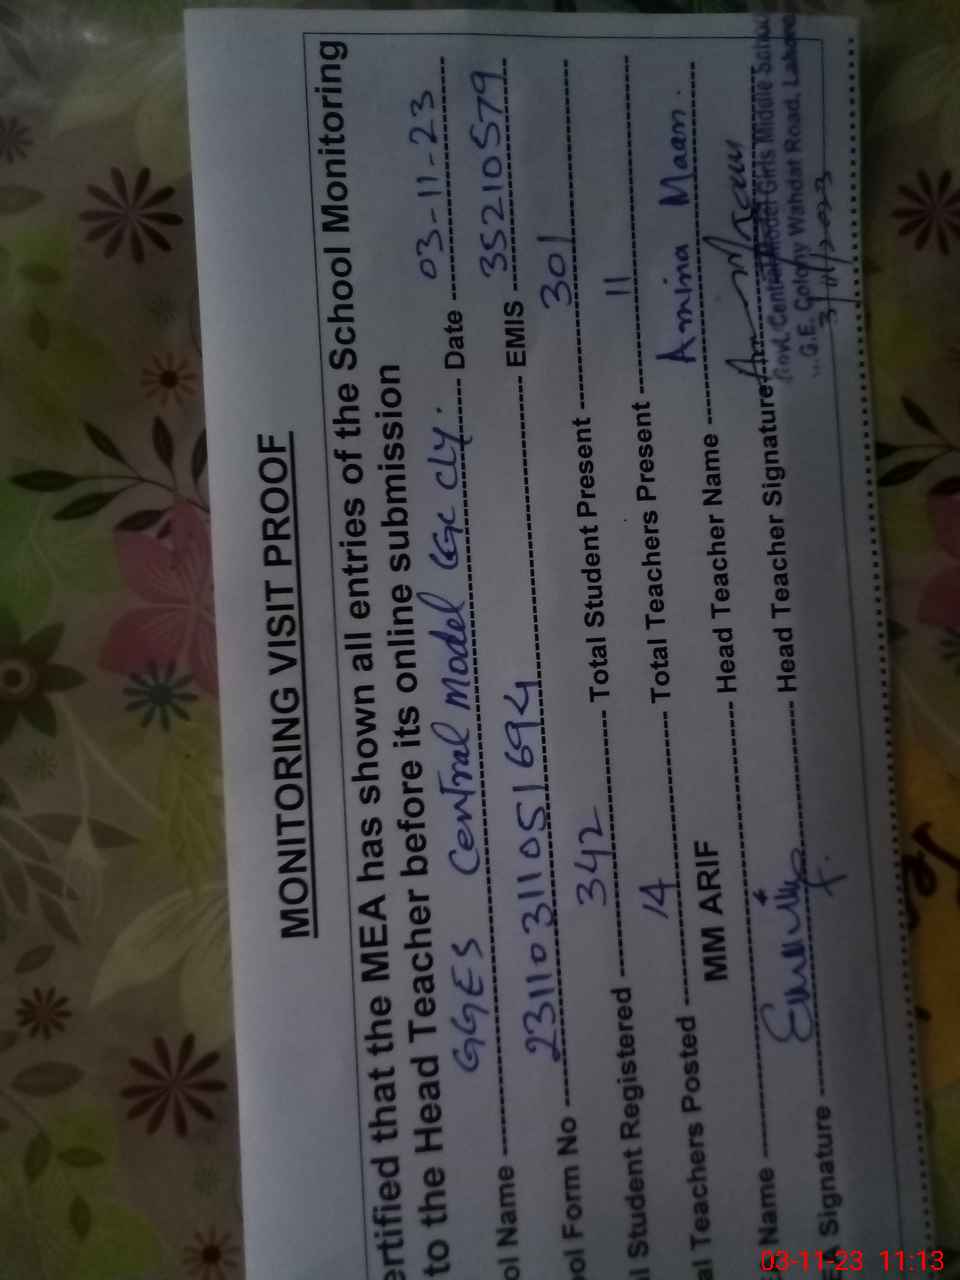 MONITORING VISIT PROOF
ertified that the MEA has shown all entries of the School Monitoring
to the Head Teacher before its online submission
ol Name GGES Central Model GEC Cly. Date 03-11-23
ool Form No 23110311051694 EMIS 35210579
l Student Registered 342 Total Student Present 301
al Teachers Posted 14 Total Teachers Present 11
MM ARIF
Name Head Teacher Name Amina Maan.
Signature Head Teacher Signature
Govt. Central Model Girls Middle School
G.E. Colony Wahdat Road, Lahore
3/11/2023
03-11-23 11:13